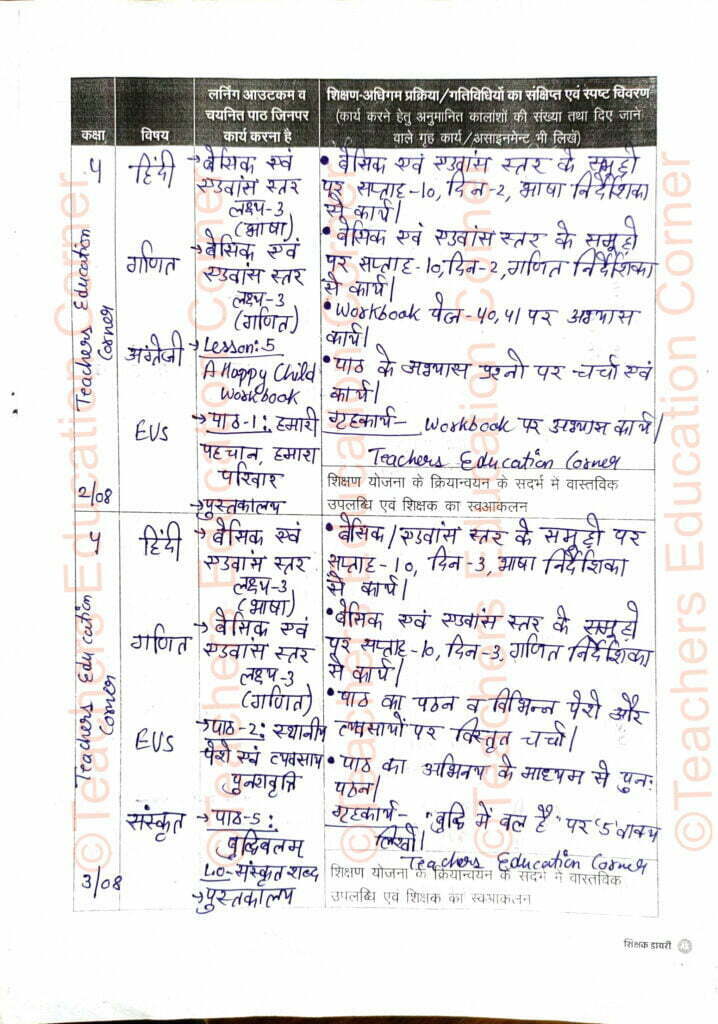 कक्षा
विषय
लर्निंग आउटकम व
चयनित पाठ जिनपर
कार्य करना है
शिक्षण-अधिगम प्रक्रिया/गतिविधियों का संक्षिप्त एवं स्पष्ट विवरण
(कार्य करने हेतु अनुमानित कालांशों की संख्या तथा दिए जाने
वाले गृह कार्य/असाइनमेंट भी लिखें)
५
Teachers Education
Corner
2/08
हिंदी
→ बेसिक एवं
एडवांस स्तर
लक्ष्य-3
(भाषा)
• बेसिक एवं एडवांस स्तर के समूहों
पर सप्ताह-10, दिन-2, भाषा निर्देशिका
से कार्य।
गणित
→ बेसिक एवं
एडवांस स्तर
लक्ष्य-3
(गणित)
• बेसिक एवं एडवांस स्तर के समूहों
पर सप्ताह-10, दिन-2, गणित निर्देशिका
से कार्य।
अंग्रेजी
→ Lesson:5
A Happy Child
Workbook
• Workbook पेज-40,41 पर अभ्यास
कार्य।
• पाठ के अभ्यास प्रश्नो पर चर्चा एवं
कार्य।
EVS
→ पाठ-1: हमारी
पहचान, हमारा
परिवार
→ पुस्तकालय
गृहकार्य- Workbook पर अभ्यास कार्य।
Teachers Education Corner
शिक्षण योजना के क्रियान्वयन के सदर्भ मे वास्तविक
उपलब्धि एवं शिक्षक का स्वआकलन
५
Teachers Education
Corner
3/08
हिंदी
→ बेसिक एवं
एडवांस स्तर
लक्ष्य-3
(भाषा)
• बेसिक/एडवांस स्तर के समूहो पर
सप्ताह-10, दिन-3, भाषा निर्देशिका
से कार्य।
गणित
→ बेसिक एवं
एडवांस स्तर
लक्ष्य-3
(गणित)
• बेसिक एवं एडवांस स्तर के समूहो
पर सप्ताह-10, दिन-3, गणित निर्देशिका
से कार्य।
EVS
→ पाठ-2: स्थानीय
पेशे एवं व्यवसाय
पुनरावृत्ति
• पाठ का पठन व विभिन्न पेशो और
व्यवसायों पर विस्तृत चर्चा।
• पाठ का अभिनय के माध्यम से पुनः
पठन।
संस्कृत
→ पाठ-5:
बुद्धिबलम्
LO-संस्कृत शब्द
→ पुस्तकालय
गृहकार्य- "बुद्धि में बल है" पर '5' वाक्य
लिखो।
Teachers Education Corner
शिक्षण योजना के क्रियान्वयन के सदर्भ मे वास्तविक
उपलब्धि एवं शिक्षक का स्वआकलन
शिक्षक डायरी
©Teachers Education Corner
©Teachers Education Corner
©Teachers Education Corner